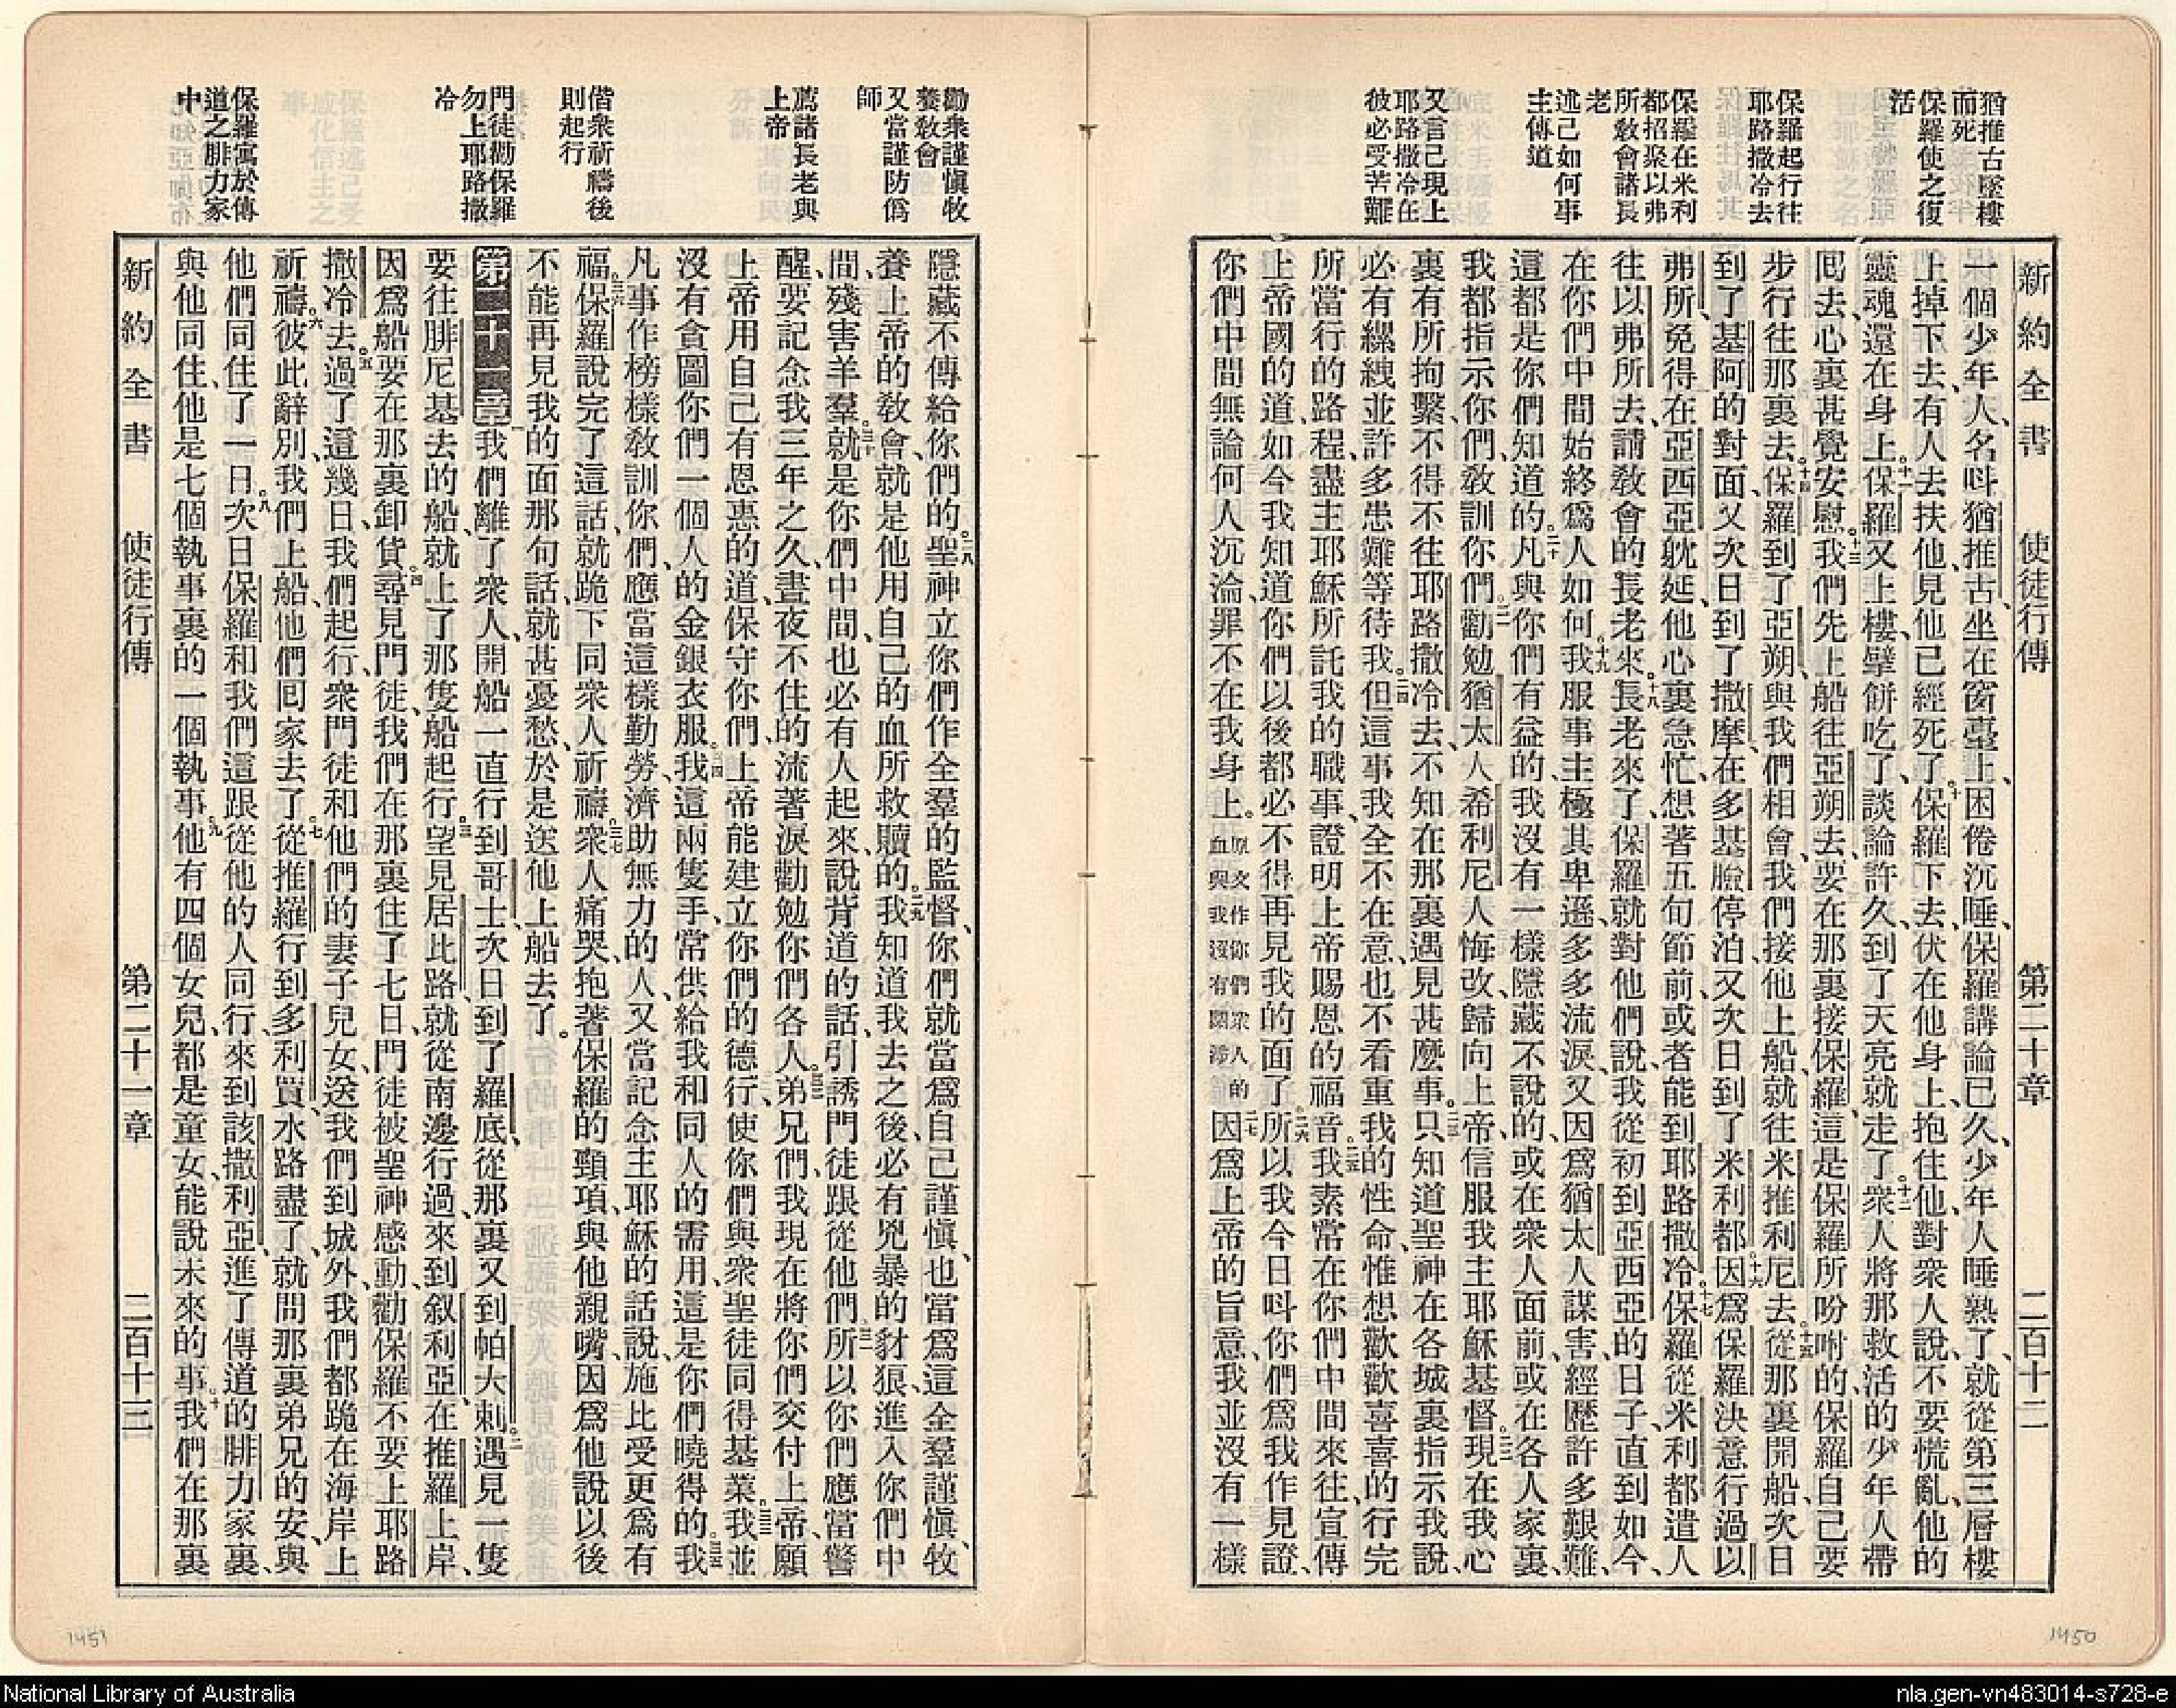 猶推古墜樓
而死
保羅使之復
活
保羅起行往
耶路撒冷去
保羅在米利
都招聚以弗
所教會諸長
老
述己如何事
主傳道
又言己現上
耶路撒冷在
彼必受苦難
新約全書 使徒行傳 第二十章 二百十二
一個少年人、名呌猶推古、坐在窗臺上、困倦沉睡、保羅講論已久、少年人睡熟了、就從第三層樓
上掉下去、有人去扶他、見他已經死了。十保羅下去、伏在他身上、抱住他、對衆人說、不要慌亂、他的
靈魂還在身上。十一保羅又上樓、擘餅吃了、談論許久、到了天亮就走了。十二衆人將那救活的少年人帶
囘去、心裏甚覺安慰。十三我們先上船往亞朔去、要在那裏接保羅、這是保羅所吩咐的、保羅自己要
步行往那裏去。十四保羅到了亞朔、與我們相會、我們接他上船、就往米推利尼去。十五從那裏開船、次日
到了基阿的對面、又次日到了撒摩、在多基臉停泊、又次日到了米利都。十六因爲保羅決意行過以
弗所、免得在亞西亞躭延、他心裏急忙、想著五旬節前、或者能到耶路撒冷。十七保羅從米利都遣人
往以弗所去、請教會的長老來。十八長老來了、保羅就對他們說、我從初到亞西亞的日子、直到如今、
在你們中間始終爲人如何。十九我服事主、極其卑遜、多多流淚、又因爲猶太人謀害、經歷許多艱難、
這都是你們知道的。二十凡與你們有益的、我沒有一樣隱藏不說的、或在衆人面前、或在各人家裏、
我都指示你們、教訓你們。二一勸勉猶太人希利尼人悔改、歸向上帝、信服我主耶穌基督。二二現在我心
裏有所拘繫、不得不往耶路撒冷去、不知在那裏遇見甚麽事。二三只知道聖神在各城裏指示我說、
必有縲絏並許多患難等待我。二四但這事我全不在意、也不看重我的性命、惟想歡歡喜喜的行完
所當行的路程、盡主耶穌所託我的職事、證明上帝賜恩的福音。二五我素常在你們中間來往、宣傳
上帝國的道、如今我知道你們以後都必不得再見我的面了。二六所以我今日呌你們爲我作見證、
你們中間無論何人沉淪、罪不在我身上。原文作你們衆人的血與我沒有關涉二七因爲上帝的旨意、我並沒有一樣
1450
勸衆謹愼牧
養教會
又當謹防僞
師
薦諸長老與
上帝
偕衆祈禱後
則起行
門徒勸保羅
勿上耶路撒
冷
保羅寓於傳
道之腓力家
中
隱藏不傳給你們的。二八聖神立你們作全羣的監督、你們就當爲自己謹愼、也當爲這全羣謹愼、牧
養上帝的教會、就是他用自己的血所救贖的。二九我知道我去之後、必有兇暴的豺狼、進入你們中
間、殘害羊羣。三十就是你們中間、也必有人起來、說背道的話、引誘門徒跟從他們。三一所以你們應當警
醒、要記念我三年之久、晝夜不住的流著淚、勸勉你們各人。三二弟兄們、我現在將你們交付上帝、願
上帝用自己有恩惠的道、保守你們、上帝能建立你們的德行、使你們與衆聖徒同得基業。三三我並
沒有貪圖你們一個人的金銀衣服。三四我這兩隻手、常供給我和同人的需用、這是你們曉得的。三五我
凡事作榜樣教訓你們、應當這樣勤勞、濟助無力的人、又當記念主耶穌的話說、施比受更爲有
福。三六保羅說完了這話、就跪下同衆人祈禱。三七衆人痛哭、抱著保羅的頸項、與他親嘴、因爲他說以後
不能再見我的面那句話、就甚憂愁、於是送他上船去了。
第二十一章 一我們離了衆人、開船一直行到哥士、次日到了羅底、從那裏又到帕大剌。二遇見一隻
要往腓尼基去的船、就上了那隻船起行。三望見居比路、就從南邊行過、來到叙利亞、在推羅上岸、
因爲船要在那裏卸貨。四尋見門徒、我們在那裏住了七日、門徒被聖神感動、勸保羅不要上耶路
撒冷去。五過了這幾日、我們起行、衆門徒和他們的妻子兒女、送我們到城外、我們都跪在海岸上
祈禱。六彼此辭別、我們上船、他們囘家去了。七從推羅行到多利買、水路盡了、就問那裏弟兄的安、與
他們同住了一日。八次日保羅和我們這跟從他的人同行、來到該撒利亞、進了傳道的腓力家裏、
與他同住、他是七個執事裏的一個執事。九他有四個女兒、都是童女、能說未來的事。十我們在那裏
新約全書 使徒行傳 第二十一章 二百十三
1451
National Library of Australia
nla.gen-vn483014-s728-e